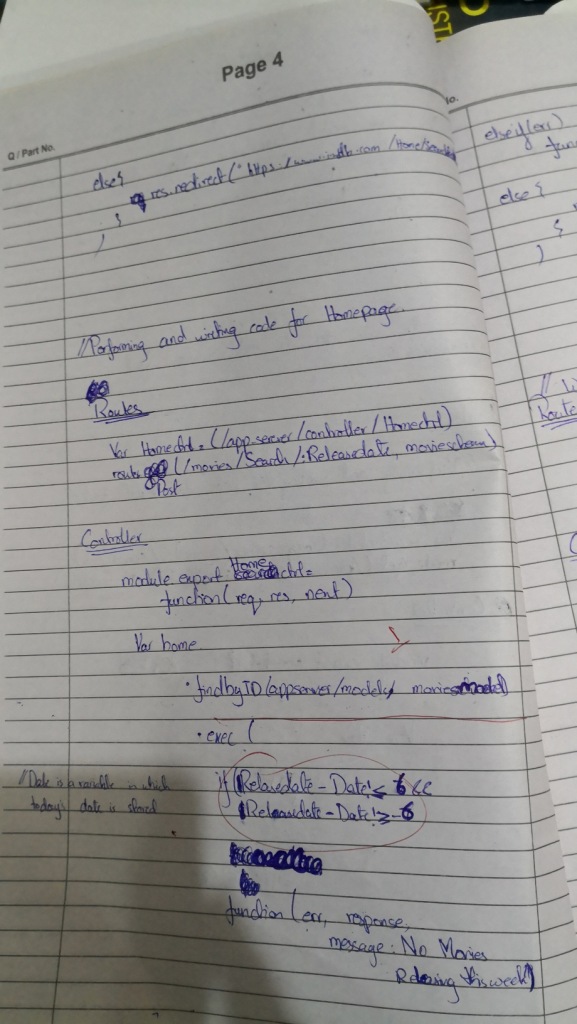 Page 4
No.
Q / Part No.
else{
res.redirect("https://www.imdb.com/Home/Search
}
)
//Performing and writing code for Homepage.
Routes
Var Homectrl = (/app.server/controller/Homectrl)
router (/movies/Search/:Releasedate, movieschema)
Post
Controller
module.export Homectrl =
function(req, res, next)
Var home
.findbyID(appserver/models/ moviesmodel)
.exec (
//Date is a variable in which
today's date is stored
if (Releasedate - Date <= 6 &&
Releasedate - Date >= -6
function (err, response,
message: No Movies
Releasing this week)
else if(err)
func
else {
}
)
Route